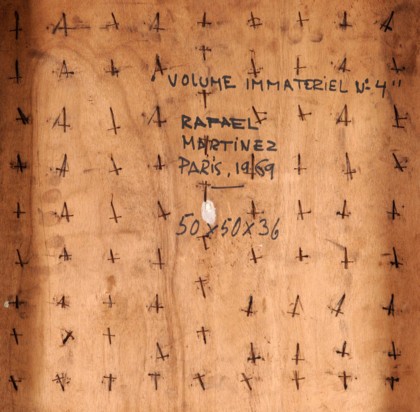 "VOLUME IMMATERIEL No 4"
RAFAEL
MARTINEZ
PARIS, 1969
50x50x36